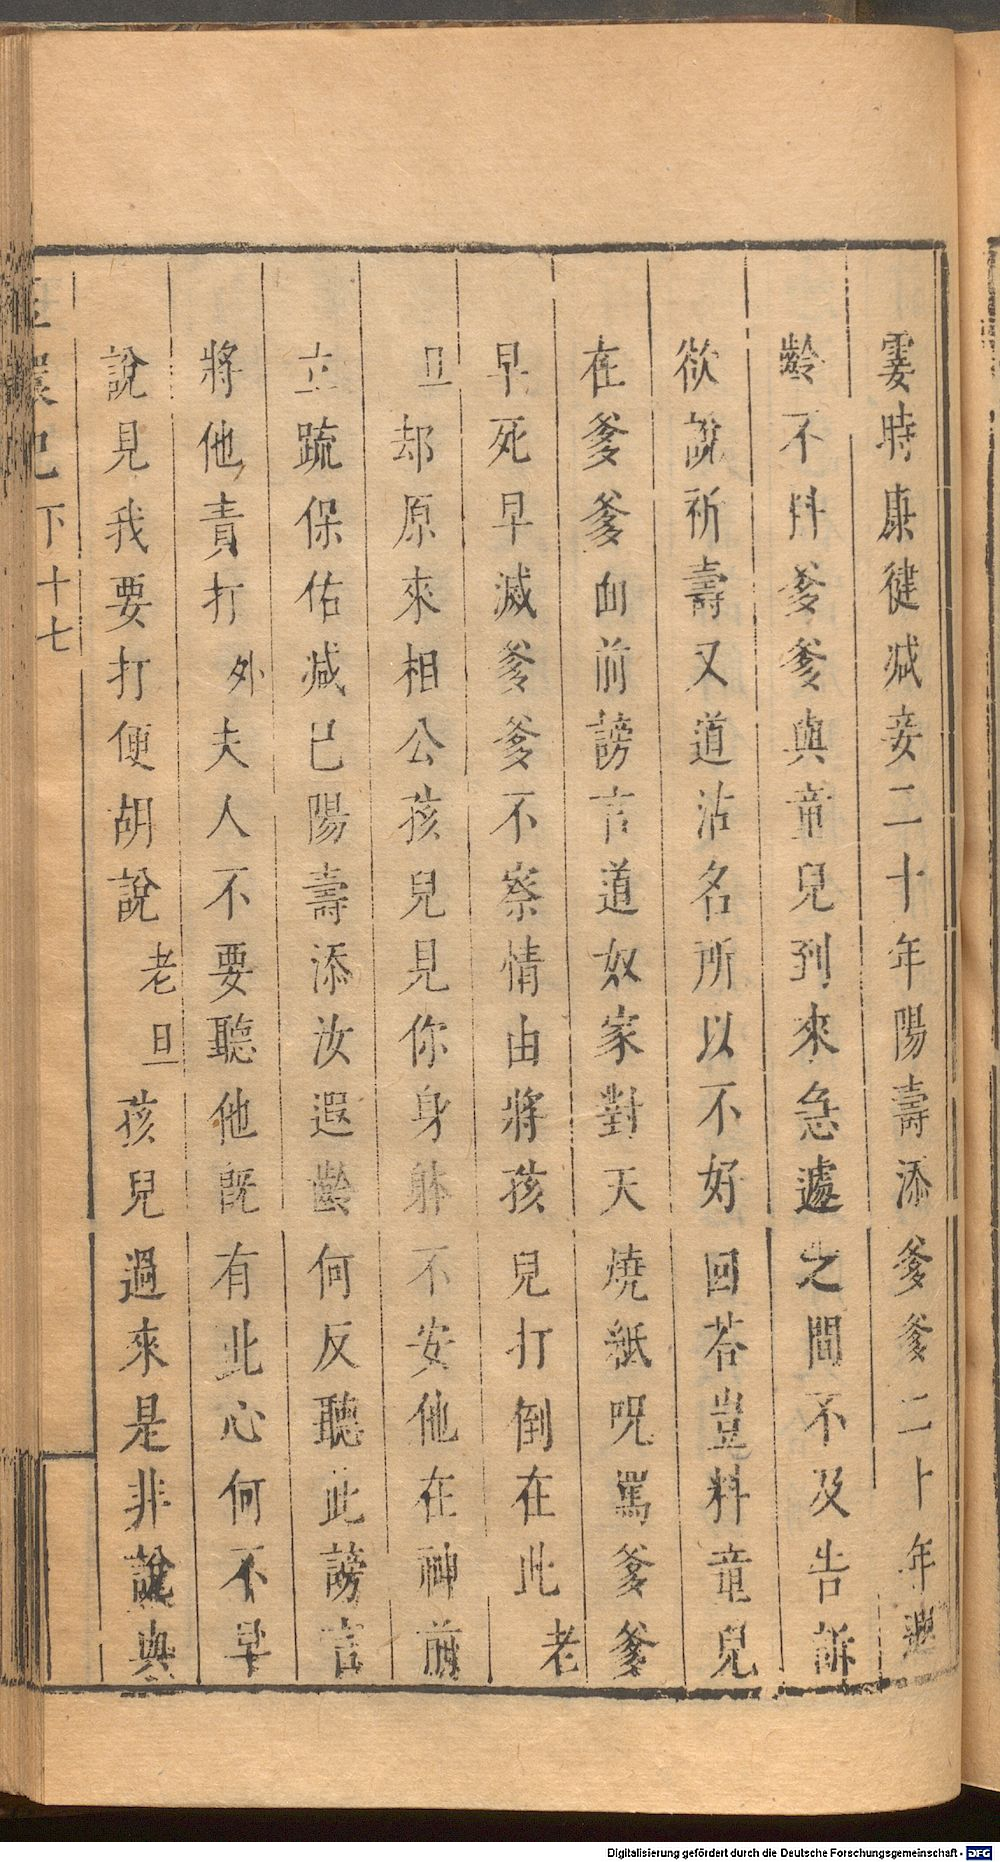 霎時康健减妾二十年陽壽添爹爹二十年遐
齡不料爹爹與童兒到來急遽之間不及告訴
欲說祈壽又道沽名所以不好回荅豈料童兒
在爹爹面前謗言道奴家對天燒紙呪罵爹爹
早死早滅爹爹不察情由將孩兒打倒在此老
旦却原來相公孩兒見你身躰不安他在神前
立䟽保佑减已陽壽添汝遐齡何反聽此謗言
將他責打外夫人不要聽他旣有此心何不早
說見我要打便胡說老旦孩兒過來是非說與
玉環記下十七
Digitalisierung gefördert durch die Deutsche Forschungsgemeinschaft - DFG